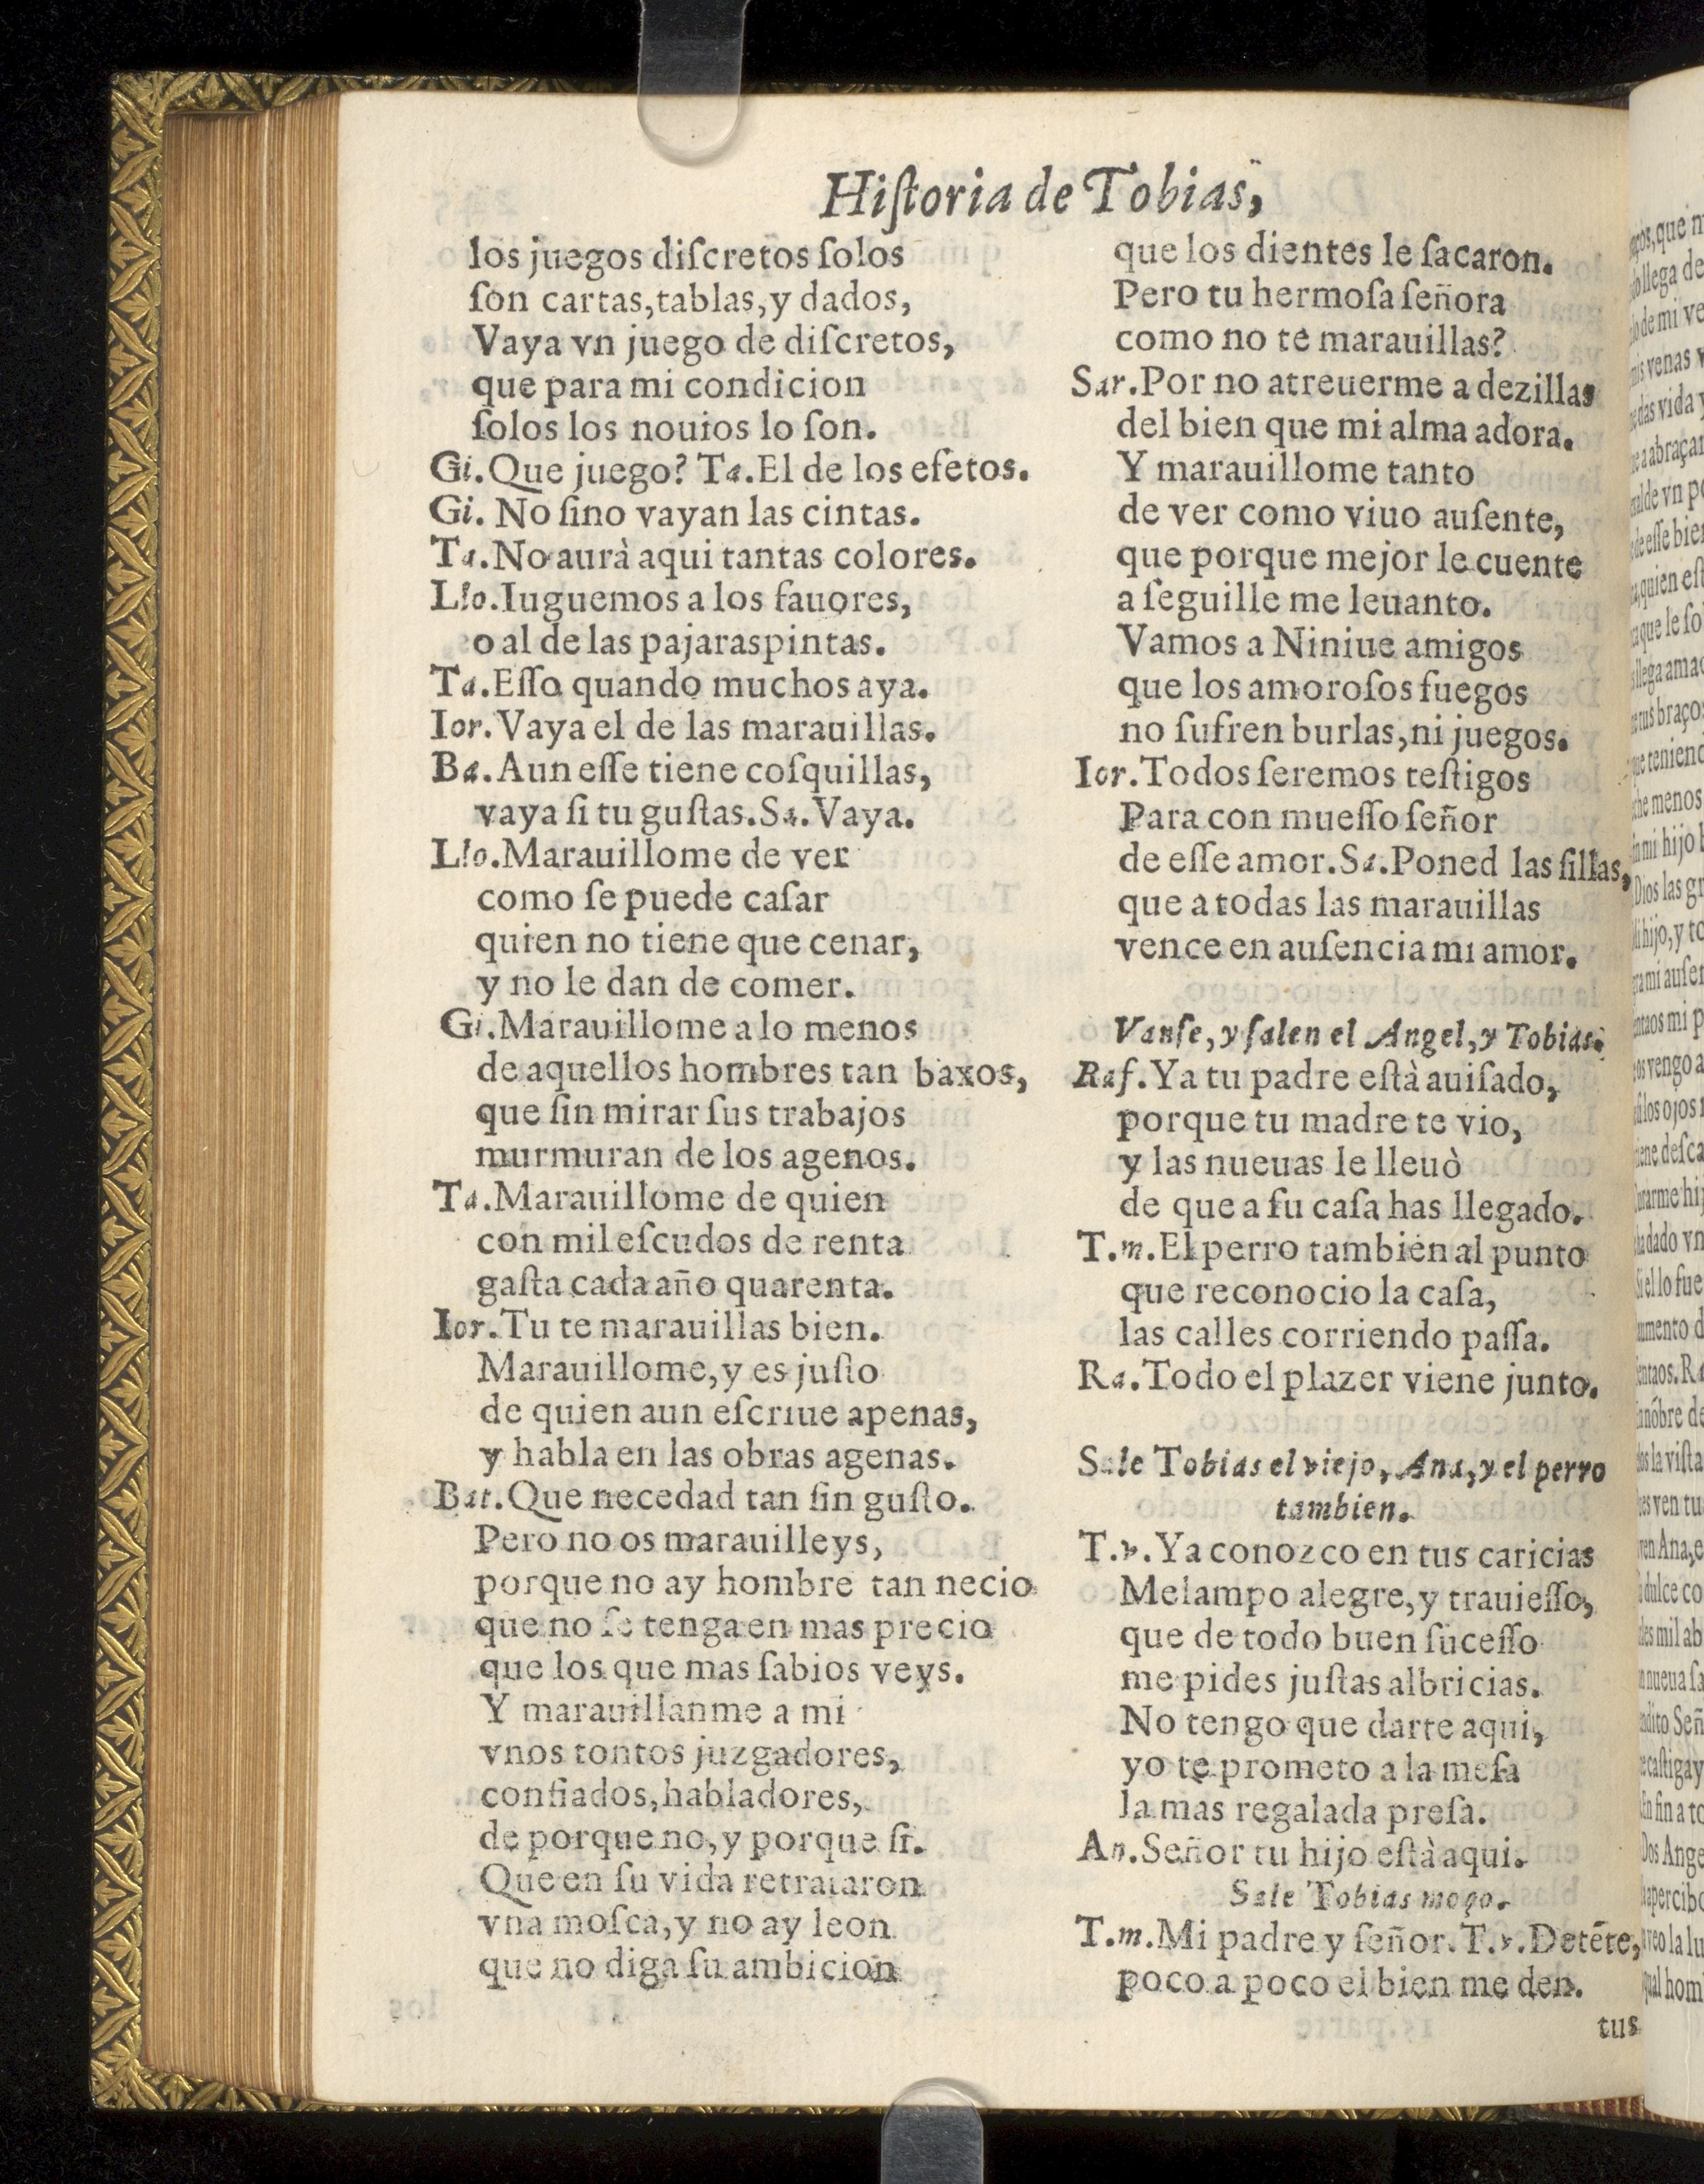 Hiſtoria de Tobias,
los juegos diſcretos ſolos
ſon cartas,tablas,y dados,
Vaya vn juego de diſcretos,
que para mi condicion
ſolos los nouios lo ſon.
Gi.Que juego? Ta.El de los efetos.
Gi. No ſino vayan las cintas.
Ta.No aurà aqui tantas colores.
Llo.Iuguemos a los fauores,
o al de las pajaraspintas.
Ta.Eſſo quando muchos aya.
Ior.Vaya el de las marauillas.
Ba.Aun eſſe tiene coſquillas,
vaya ſi tu guſtas.Sa.Vaya.
Llo.Marauillome de ver
como ſe puede caſar
quien no tiene que cenar,
y no le dan de comer.
Gi.Marauillome a lo menos
de aquellos hombres tan baxos,
que ſin mirar ſus trabajos
murmuran de los agenos.
Ta.Marauillome de quien
con mil eſcudos de renta
gaſta cada año quarenta.
Ior.Tu te marauillas bien.
Marauillome,y es juſto
de quien aun eſcriue apenas,
y habla en las obras agenas.
Bat.Que necedad tan ſin guſto.
Pero no os marauilleys,
porque no ay hombre tan necio
que no ſe tenga en mas precio
que los que mas ſabios veys.
Y marauillanme a mi
vnos tontos juzgadores,
confiados,habladores,
de porque no,y porque ſi.
Que en ſu vida retrataron
vna moſca,y no ay leon
que no diga ſu ambicion
que los dientes le ſacaron.
Pero tu hermoſa ſeñora
como no te marauillas?
Sar.Por no atreuerme a dezillas
del bien que mi alma adora.
Y marauillome tanto
de ver como viuo auſente,
que porque mejor le cuente
a ſeguille me leuanto.
Vamos a Niniue amigos
que los amoroſos fuegos
no ſufren burlas,ni juegos.
Ior.Todos ſeremos teſtigos
Para con mueſſo ſeñor
de eſſe amor.Sa.Poned las ſillas,
que a todas las marauillas
vence en auſencia mi amor.
Vanſe,y ſalen el Angel,y Tobias.
Raf.Ya tu padre eſtà auiſado,
porque tu madre te vio,
y las nueuas le lleuò
de que a ſu caſa has llegado.
T.m.El perro tambien al punto
que reconocio la caſa,
las calles corriendo paſſa.
Ra.Todo el plazer viene junto.
Sale Tobias el viejo, Ana,y el perro
tambien.
T.v.Ya conozco en tus caricias
Melampo alegre,y trauieſſo,
que de todo buen ſuceſſo
me pides juſtas albricias.
No tengo que darte aqui,
yo te prometo a la meſa
la mas regalada preſa.
An.Señor tu hijo eſtà aqui.
Sale Tobias moço.
T.m.Mi padre y ſeñor.T.v.Detẽte,
poco a poco el bien me den.
tus